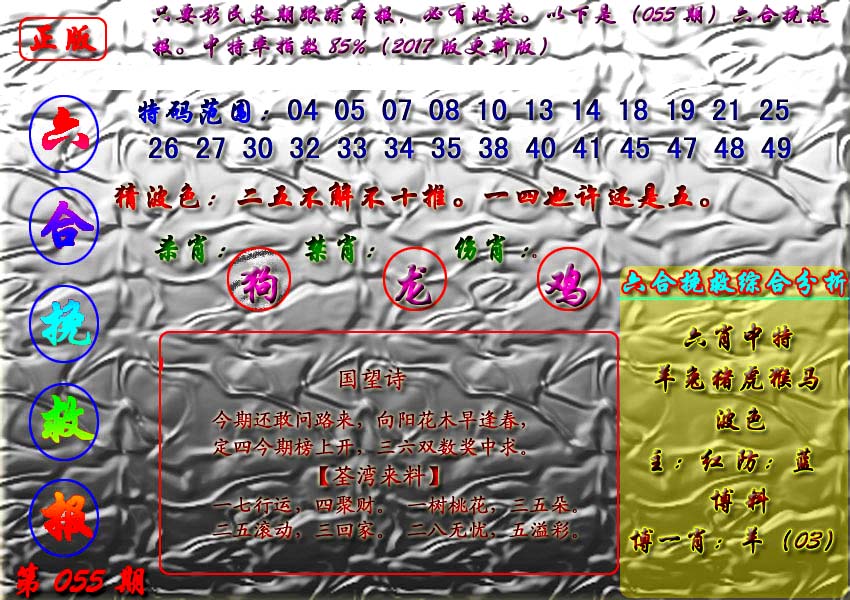 正版
只要彩民长期跟踪本报，必有收获。以下是（055期）六合挽救
报。中特率指数85%（2017版更新版）
六合挽救报
第055期
特码范围：04 05 07 08 10 13 14 18 19 21 25
26 27 30 32 33 34 35 38 40 41 45 47 48 49
猜波色：二五不解不十推。一四也许还是五。
杀肖：狗 禁肖：龙 伤肖：鸡
国望诗
今期还敢问路来，向阳花木早逢春，
定四今期榜上开，三六双数奖中求。
【荃湾来料】
一七行运，四聚财。 一树桃花，三五朵。
二五滚动，三回家。 二八无忧，五溢彩。
六合挽救综合分析
六肖中特
羊兔猪虎猴马
波色
主：红防：蓝
博料
博一肖：羊（03）